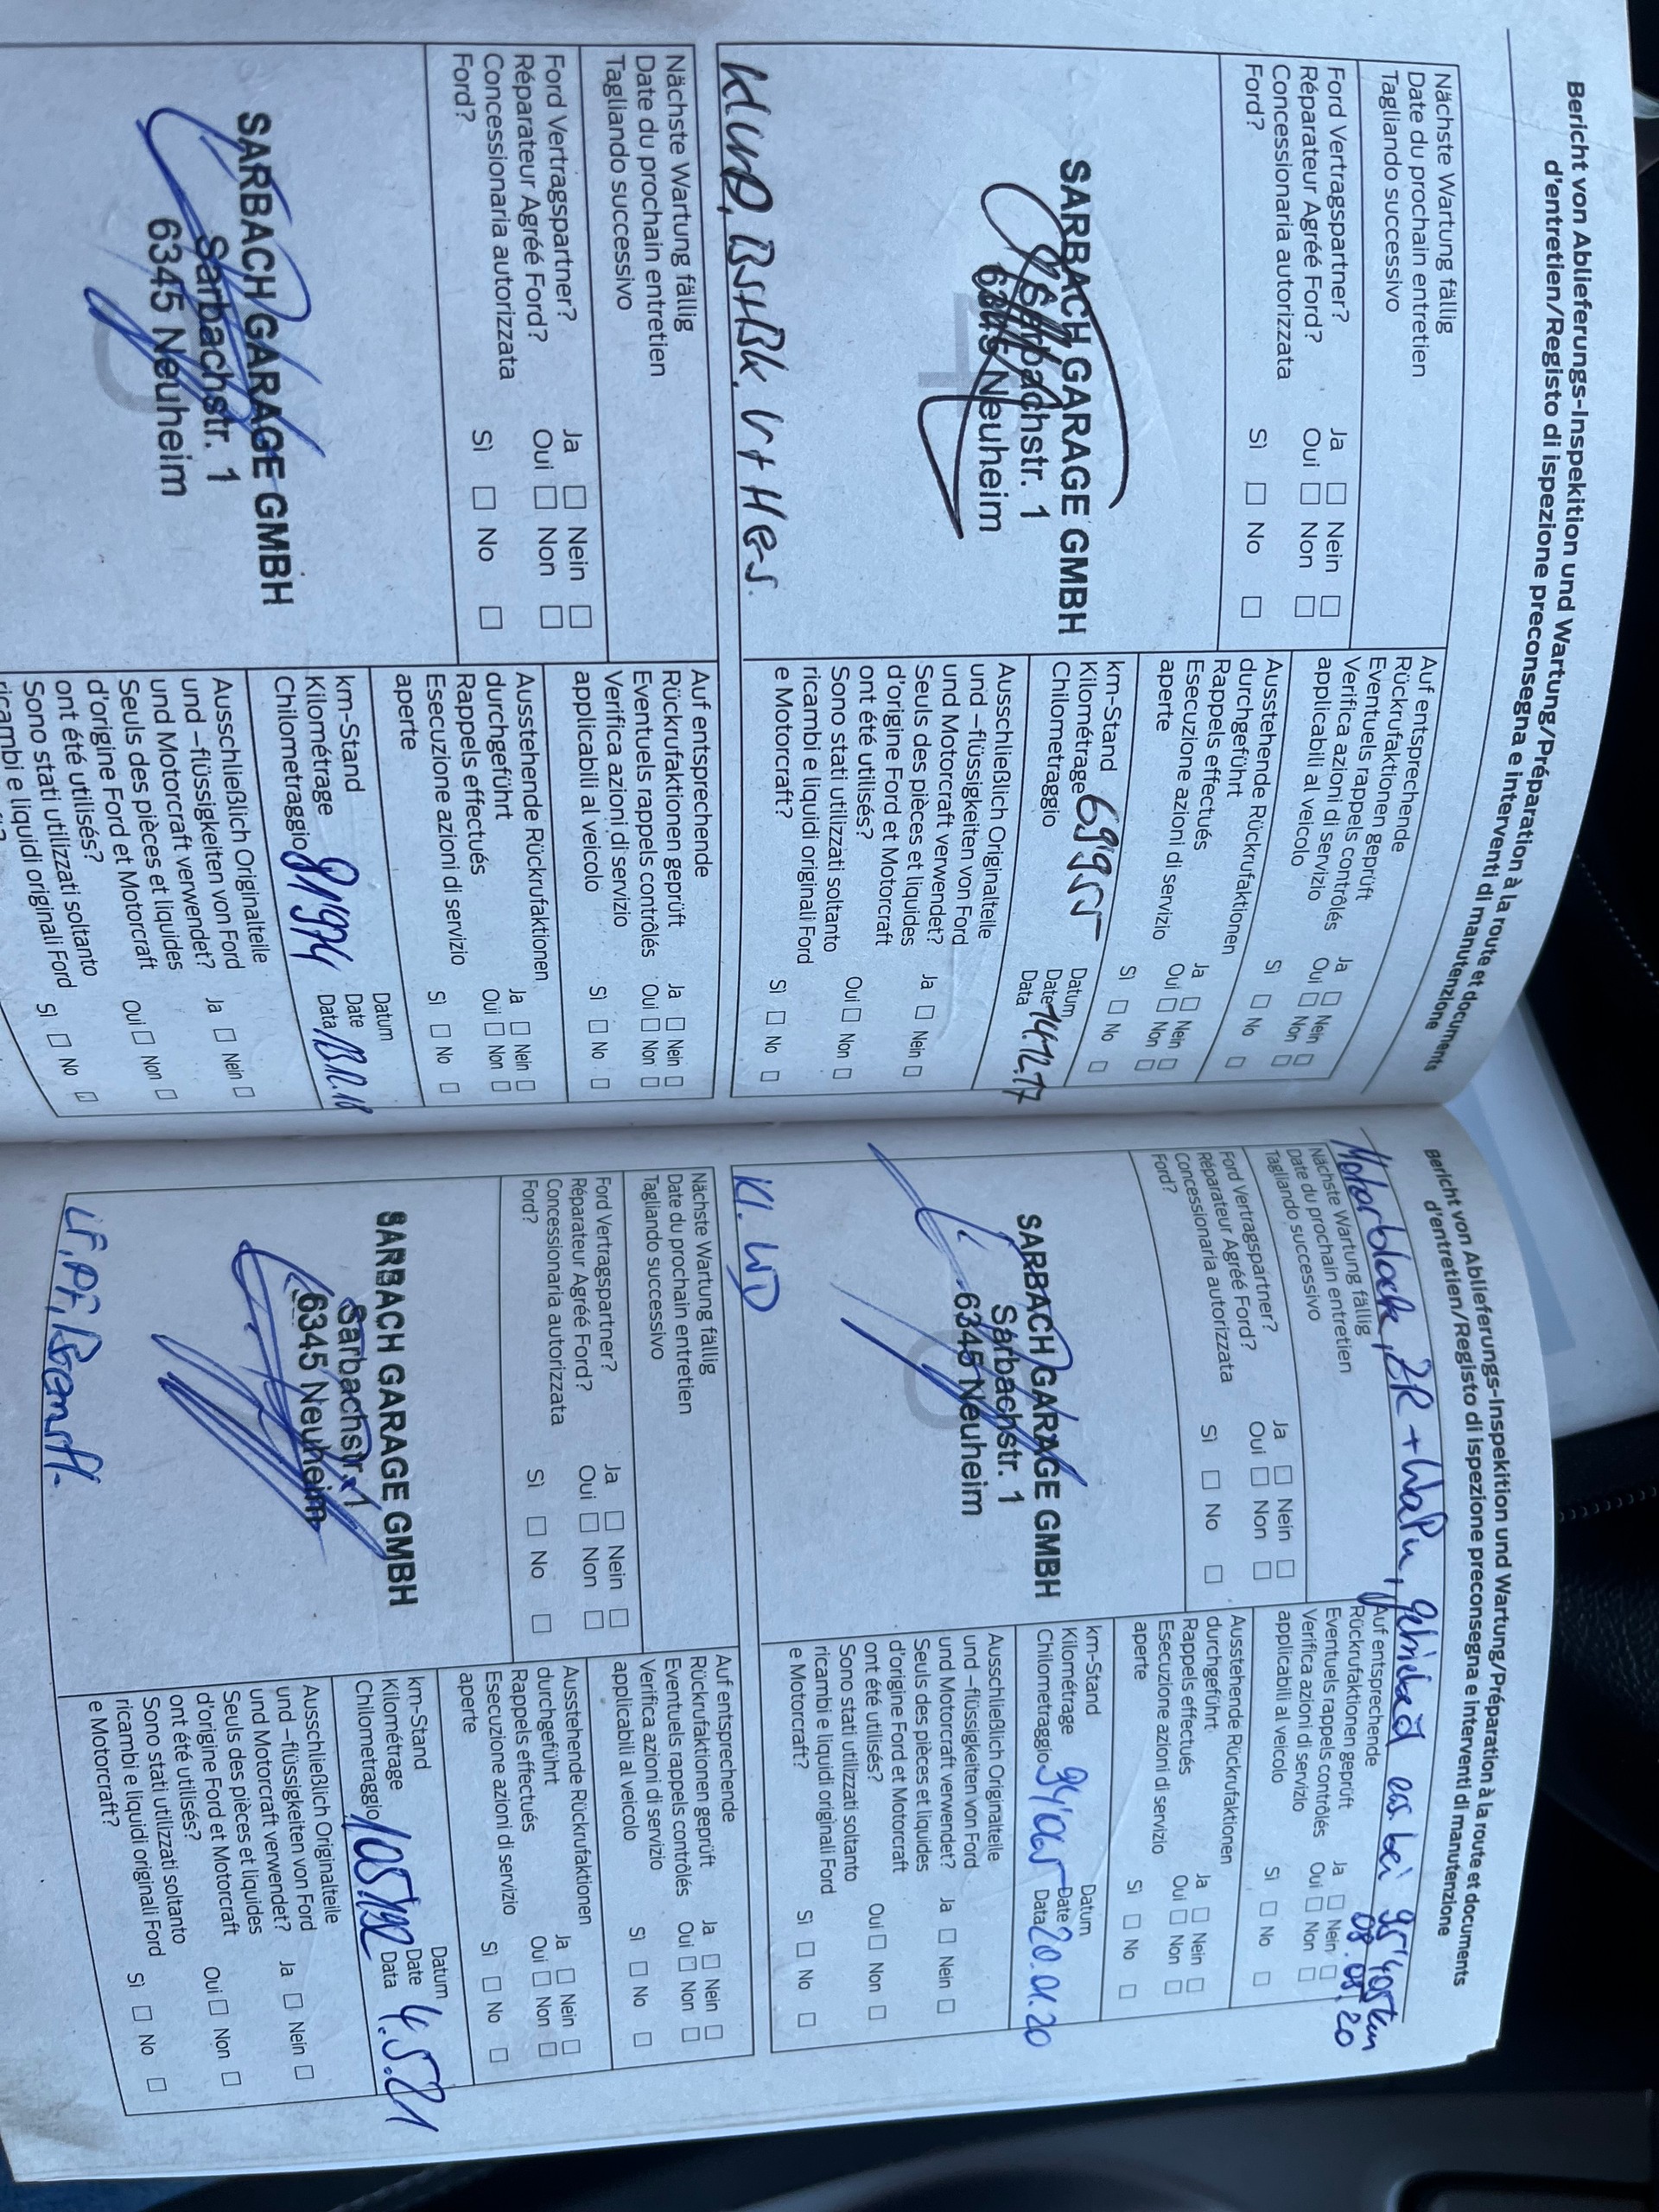 Bericht von Ablieferungs-Inspekition und Wartung/Préparation à la route et documents
d'entretien/Registo di ispezione preconsegna e interventi di manutenzione
Nächste Wartung fällig
Date du prochain entretien
Tagliando successivo
Ford Vertragspartner?
Réparateur Agréé Ford?
Concessionaria autorizzata
Ford?
Ja Nein
Oui Non
Sì No
SARBACH GARAGE GMBH
Sarbachstr. 1
6345 Neuheim
Auf entsprechende
Rückrufaktionen geprüft
Eventuels rappels contrôlés
Verifica azioni di servizio
applicabili al veicolo
Ja Nein
Oui Non
Sì No
Ausstehende Rückrufaktionen
durchgeführt
Rappels effectués
Esecuzione azioni di servizio
aperte
Ja Nein
Oui Non
Sì No
km-Stand
Kilométrage 69'955
Chilometraggio
Datum
Date 14.12.17
Data
Ausschließlich Originalteile
und –flüssigkeiten von Ford
und Motorcraft verwendet?
Seuls des pièces et liquides
d'origine Ford et Motorcraft
ont été utilisés?
Sono stati utilizzati soltanto
ricambi e liquidi originali Ford
e Motorcraft?
Ja Nein
Oui Non
Sì No
Nächste Wartung fällig
Date du prochain entretien
Tagliando successivo
Ford Vertragspartner?
Réparateur Agréé Ford?
Concessionaria autorizzata
Ford?
Ja Nein
Oui Non
Sì No
SARBACH GARAGE GMBH
Sarbachstr. 1
6345 Neuheim
Auf entsprechende
Rückrufaktionen geprüft
Eventuels rappels contrôlés
Verifica azioni di servizio
applicabili al veicolo
Ja Nein
Oui Non
Sì No
Ausstehende Rückrufaktionen
durchgeführt
Rappels effectués
Esecuzione azioni di servizio
aperte
Ja Nein
Oui Non
Sì No
km-Stand
Kilométrage
Chilometraggio 81'974
Datum
Date
Data
Ausschließlich Originalteile
und –flüssigkeiten von Ford
und Motorcraft verwendet?
Seuls des pièces et liquides
d'origine Ford et Motorcraft
ont été utilisés?
Sono stati utilizzati soltanto
ricambi e liquidi originali Ford
Ja Nein
Oui Non
Sì No
Bericht von Ablieferungs-Inspekition und Wartung/Préparation à la route et documents
d'entretien/Registo di ispezione preconsegna e interventi di manutenzione
ZR + WaPu, bei 95'405km
08.05.20
Nächste Wartung fällig
Date du prochain entretien
Tagliando successivo
Ford Vertragspartner?
Réparateur Agréé Ford?
Concessionaria autorizzata
Ford?
Ja Nein
Oui Non
Sì No
SARBACH GARAGE GMBH
Sarbachstr. 1
6345 Neuheim
Auf entsprechende
Rückrufaktionen geprüft
Eventuels rappels contrôlés
Verifica azioni di servizio
applicabili al veicolo
Ja Nein
Oui Non
Sì No
Ausstehende Rückrufaktionen
durchgeführt
Rappels effectués
Esecuzione azioni di servizio
aperte
Ja Nein
Oui Non
Sì No
km-Stand
Kilométrage
Chilometraggio 94'065
Datum
Date
Data 20.01.20
Ausschließlich Originalteile
und –flüssigkeiten von Ford
und Motorcraft verwendet?
Seuls des pièces et liquides
d'origine Ford et Motorcraft
ont été utilisés?
Sono stati utilizzati soltanto
ricambi e liquidi originali Ford
e Motorcraft?
Ja Nein
Oui Non
Sì No
Kl. WD
Nächste Wartung fällig
Date du prochain entretien
Tagliando successivo
Ford Vertragspartner?
Réparateur Agréé Ford?
Concessionaria autorizzata
Ford?
Ja Nein
Oui Non
Sì No
SARBACH GARAGE GMBH
Sarbachstr. 1
6345 Neuheim
Auf entsprechende
Rückrufaktionen geprüft
Eventuels rappels contrôlés
Verifica azioni di servizio
applicabili al veicolo
Ja Nein
Oui Non
Sì No
Ausstehende Rückrufaktionen
durchgeführt
Rappels effectués
Esecuzione azioni di servizio
aperte
Ja Nein
Oui Non
Sì No
km-Stand
Kilométrage
Chilometraggio 105'192
Datum
Date 4.5.21
Data
Ausschließlich Originalteile
und –flüssigkeiten von Ford
und Motorcraft verwendet?
Seuls des pièces et liquides
d'origine Ford et Motorcraft
ont été utilisés?
Sono stati utilizzati soltanto
ricambi e liquidi originali Ford
e Motorcraft?
Ja Nein
Oui Non
Sì No
LF, PF,